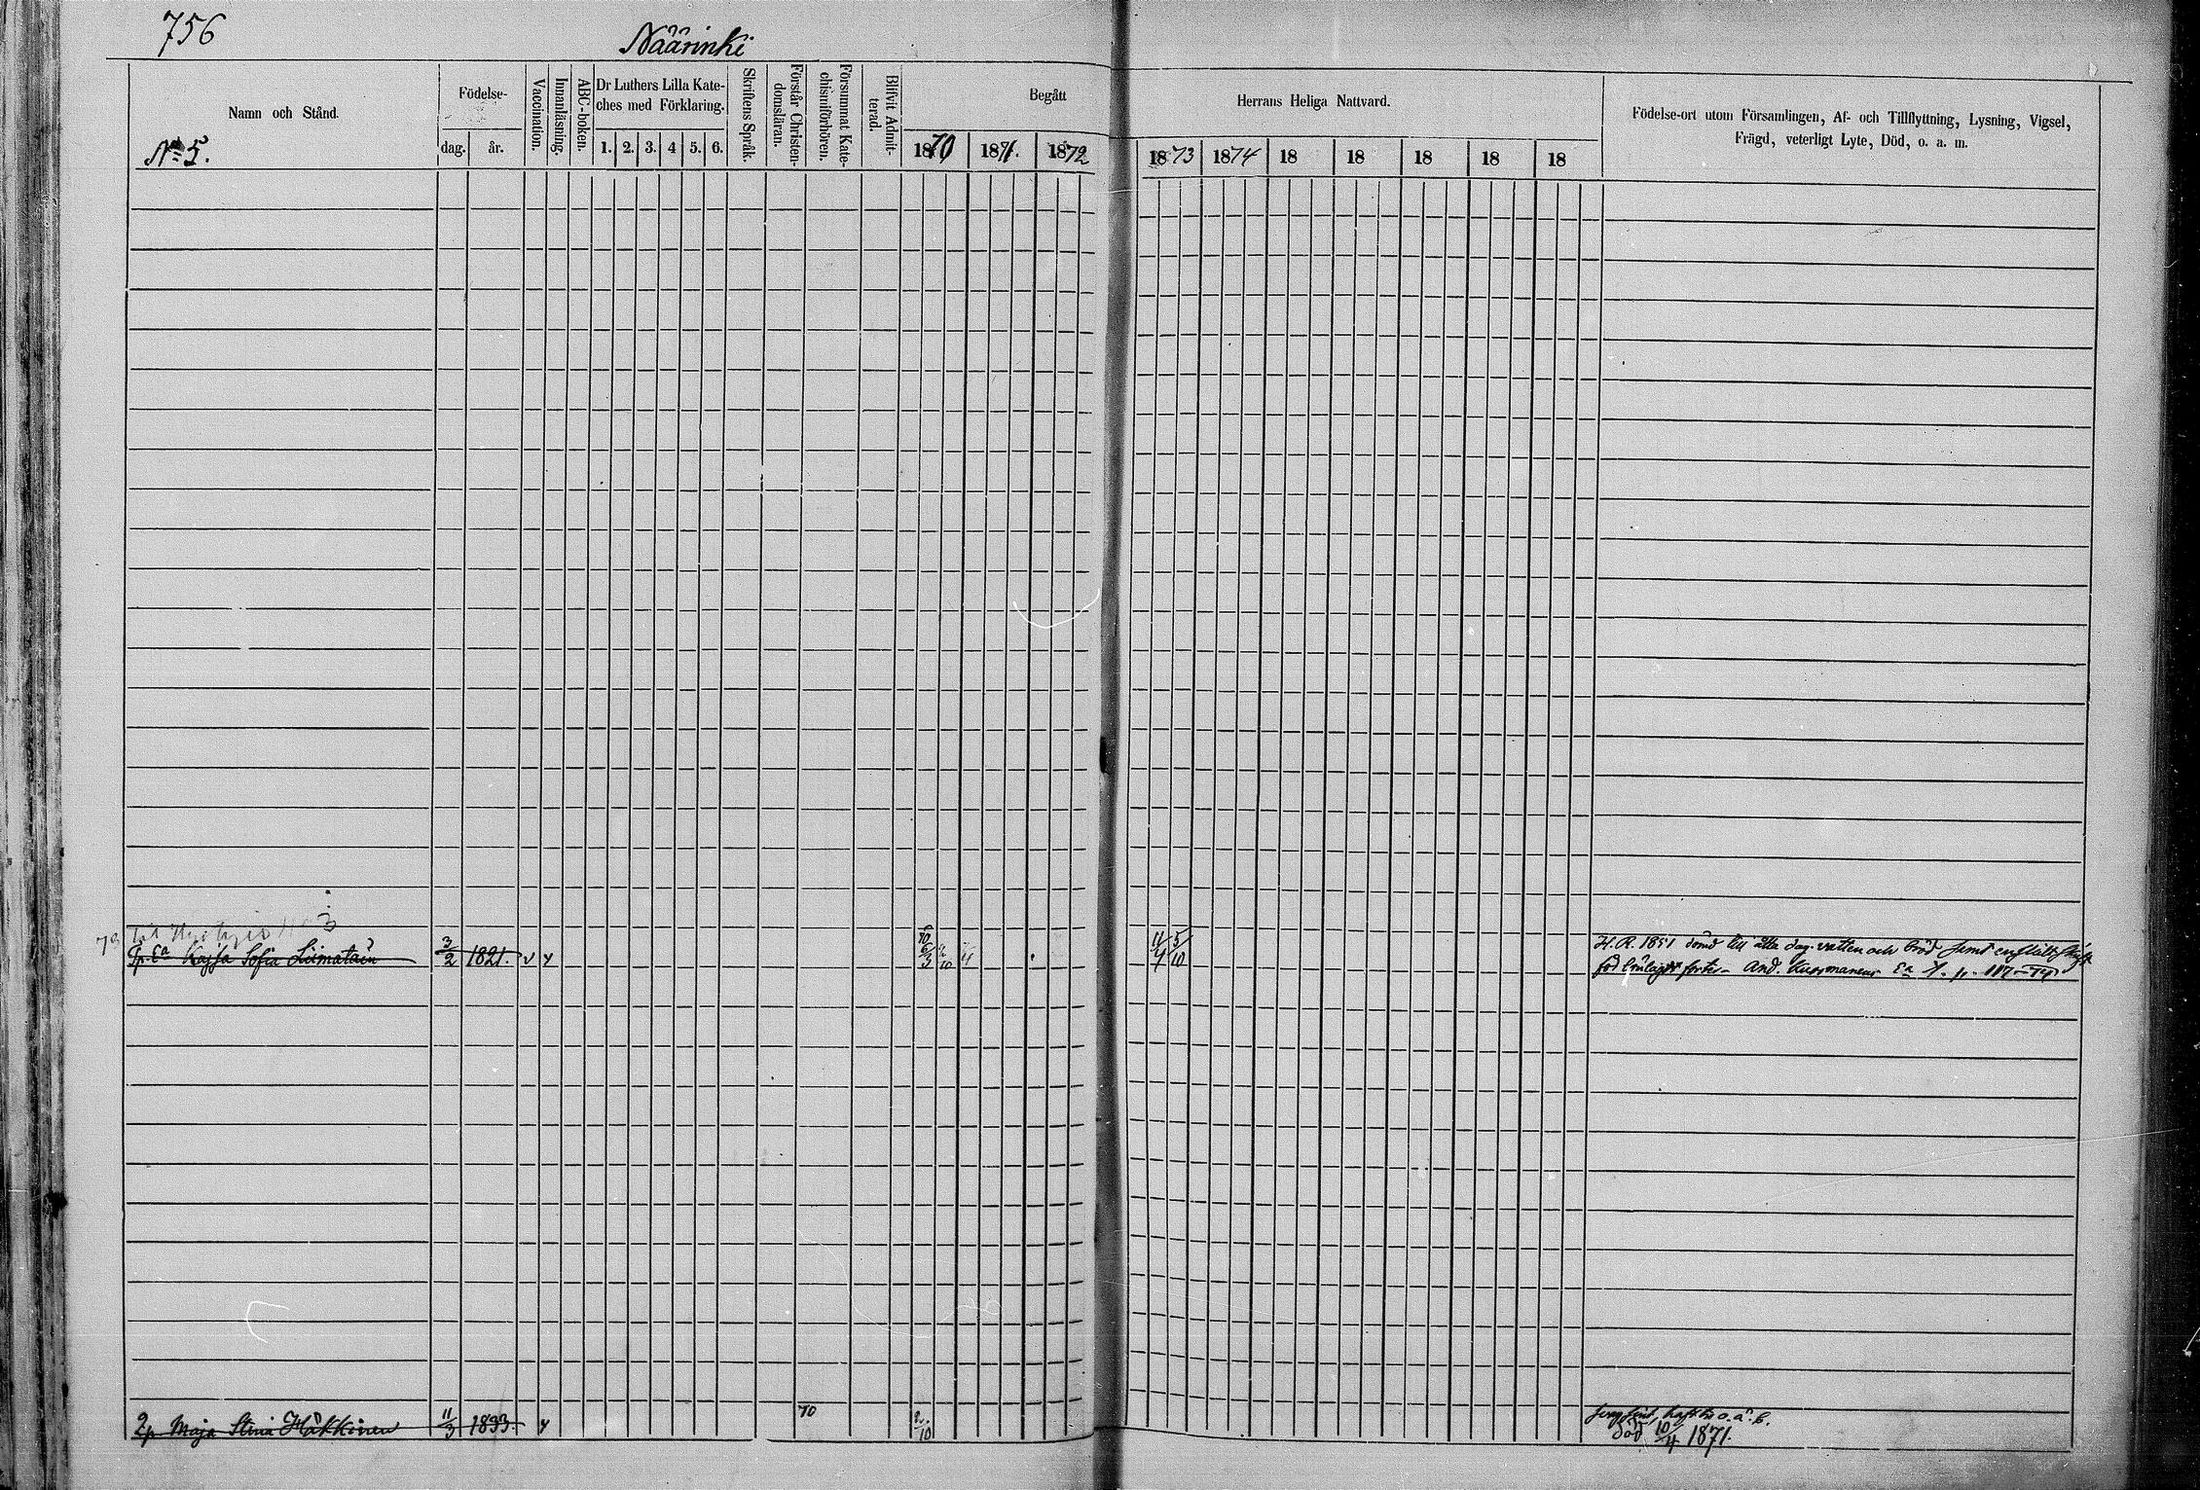 756
Näärinki
Namn och Stånd.
No 5.
Födelse-
dag. år.
Vaccination.
Innanläsning.
ABC-boken.
Dr Luthers Lilla Kate-
ches med Förklaring.
1. 2. 3. 4 5. 6.
Skriftens Språk.
Förstår Christen-
domsläran.
Försummat Kate-
chismiförhören.
Blifvit Admit-
terad.
Begått
1870 1871. 1872
Herrans Heliga Nattvard.
1873 1874 18 18 18 18 18
Födelse-ort utom Församlingen, Af- och Tillflyttning, Lysning, Vigsel,
Frägd, veterligt Lyte, Död, o. a. m.
3
Kajsa Sofia Liimatain 3/2 1821. v y 6/3 11/4 5/10
H. R. 1851 dömd till åtta dag. vatten och bröd samt
And. Kuosmanens
Maja Stina Häkkinen 11/3 1833. y 70
död 10/4 1871.